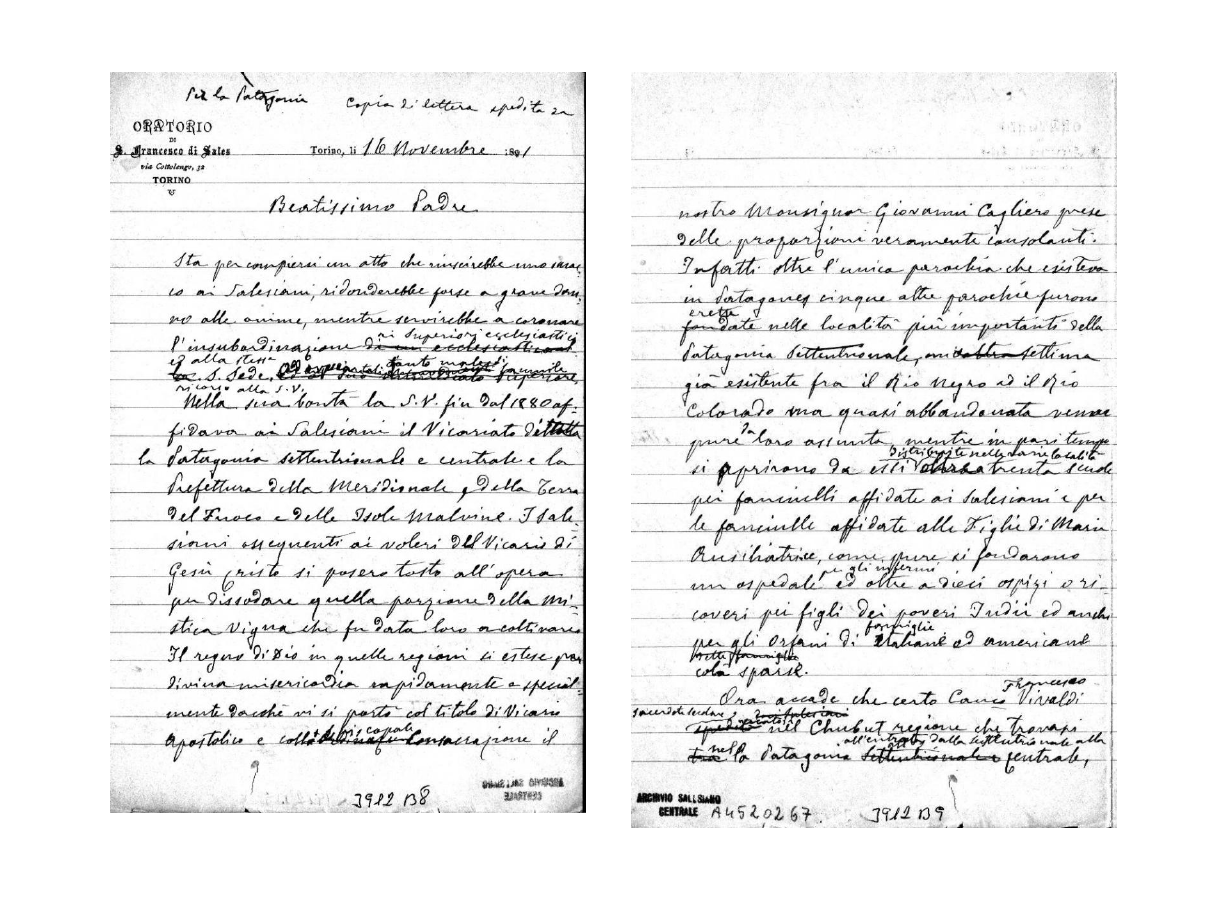 Per la Patagonia
Copia di lettera spedita da
ORATORIO
DI
S. Francesco di Sales
via Cottolengo, 32
TORINO
Torino, li 16 Novembre 1891
Beatissimo Padre
Sta per compiersi un atto che riuscirebbe uno smac=
co ai Salesiani, ridonderebbe forse a grave dan=
no alle anime, mentre servirebbe a coronare
ai Superiori ecclesiastici
l'insubordinazione
ed alla stessa
S. Sede,
ricorso alla S. V.
Nella sua bontà la S. V. fin dal 1880 af=
fidava ai Salesiani il Vicariato della
la Patagonia settentrionale e centrale e la
Prefettura della Meridionale, della Terra
del Fuoco e delle Isole Malvine. I Sale=
siani ossequenti ai voleri del Vicario di
Gesù Cristo si posero tosto all'opera
per dissodare quella porzione della Mi=
stica Vigna che fu data loro a coltivare
Il regno di Dio in quelle regioni si estese per
divina misericordia rapidamente e special=
mente dacchè vi si portò col titolo di Vicario
episcopale
Apostolico e colla consacrazione il
3912 B8
ARCHIVIO SALESIANO
CENTRALE
nostro Monsignor Giovanni Cagliero prese
delle proporzioni veramente consolanti.
Infatti oltre l'unica parochia che esisteva
in Patagones cinque altre parochie furono
erette
fondate nelle località più importanti della
Patagonia Settentrionale, settima
già esistente fra il Rio Negro ed il Rio
Colorado ma quasi abbandonata venne
da
pure loro assunta, mentre in pari tempo
distribuite nelle varie località
si aprirono da essi oltre a trenta scuole
pei fanciulli affidate ai Salesiani e per
le fanciulle affidate alle Figlie di Maria
Ausiliatrice, come pure si fondarono
per gli infermi
un ospedale ed oltre a dieci ospizi o ri=
coveri pei figli dei poveri Indii ed anche
famiglie
per gli Orfani di italiane ed americane
colà sparse.
Francesco
Ora accade che certo Canco Vivaldi
sacerdote secolare
nel Chubut regione che trovasi
all'entrata dalla settentrionale alla
nella Patagonia Settentrionale centrale,
ARCHIVIO SALESIANO
CENTRALE
A4520267
3912 B9